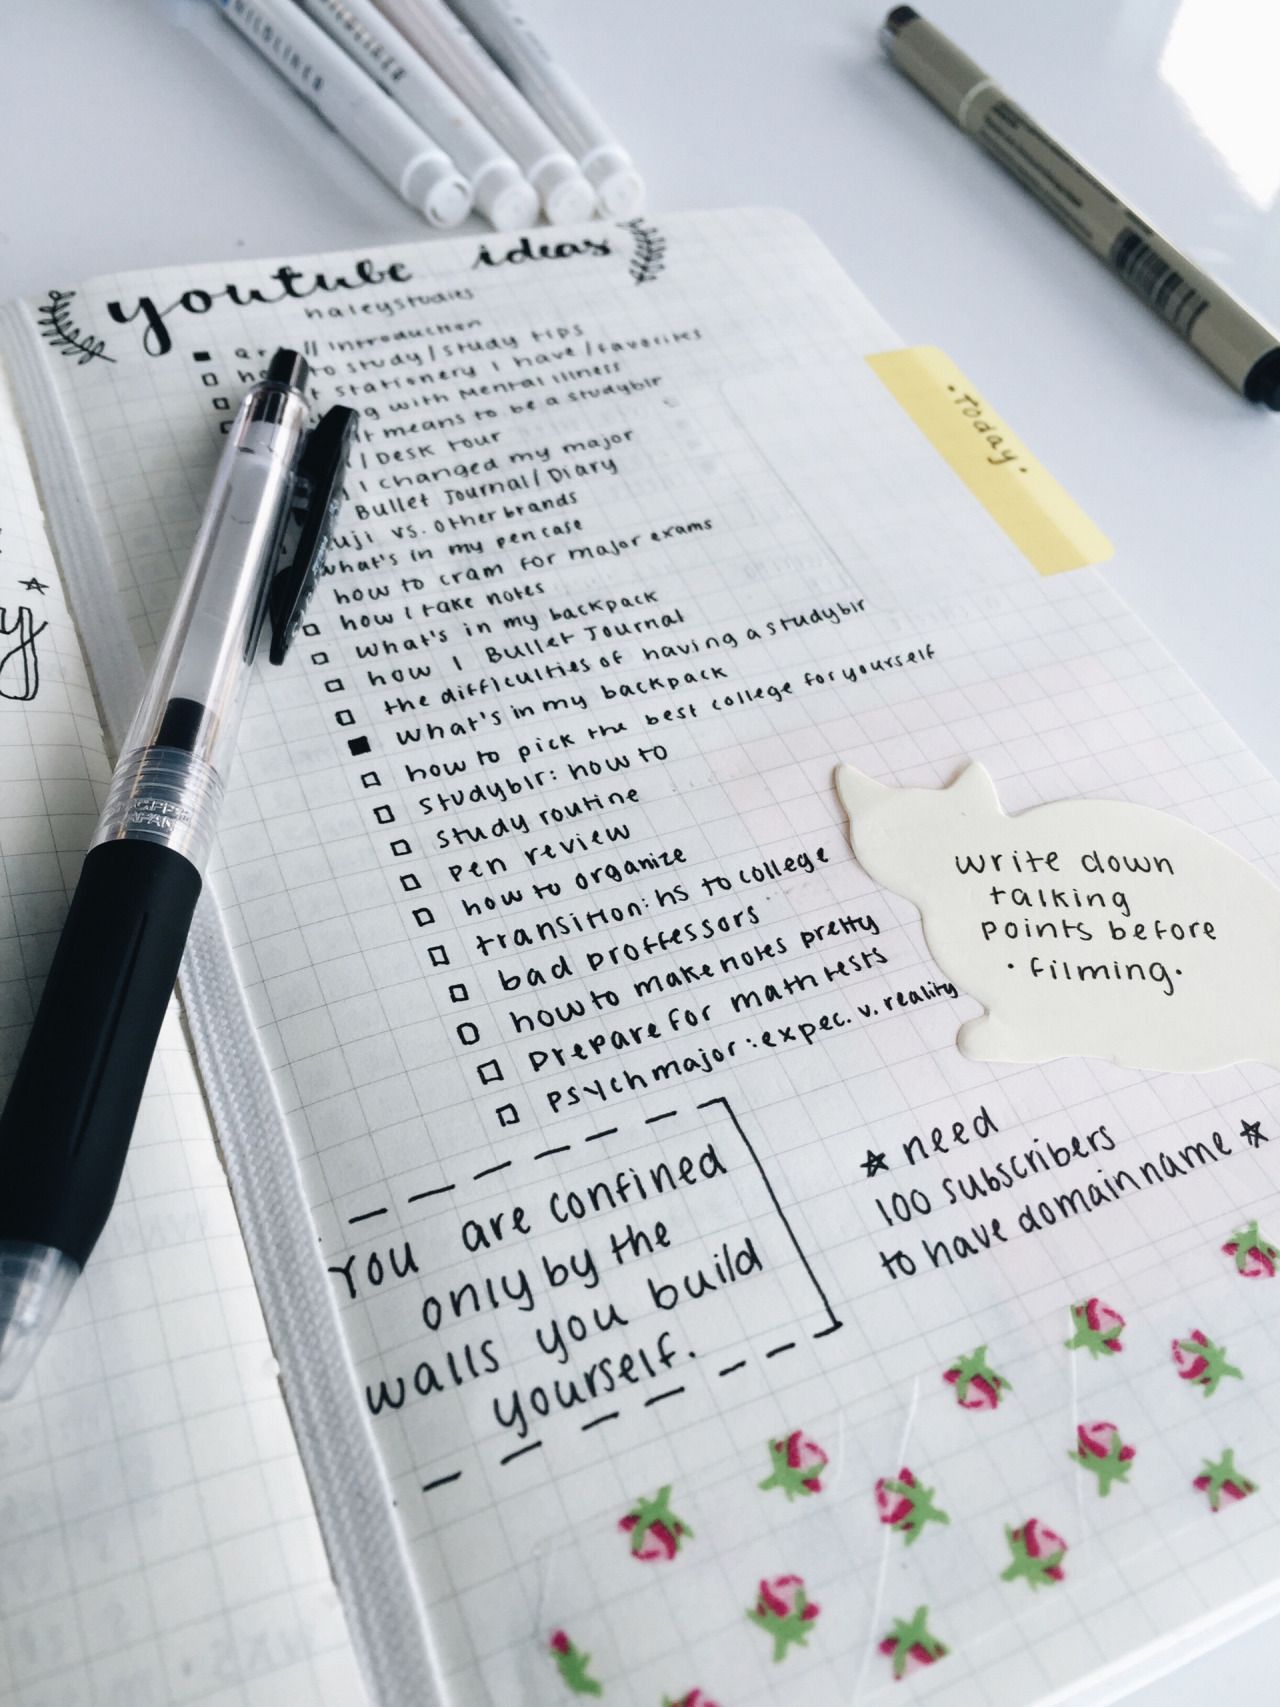 MILDLINER
youtube ideas
haleystudies
// introduction
how to study/study tips
stationery I have/favorites
with Mental illness
it means to be a studyblr
/Desk tour
I changed my major
Bullet Journal/Diary
uji vs. other brands
what's in my pen case
how to cram for major exams
how I take notes
what's in my backpack
how I Bullet Journal
the difficulties of having a studyblr
what's in my backpack
how to pick the best college for yourself
studyblr: how to
study routine
pen review
how to organize
transition: hs to college
bad proffessors
how to make notes pretty
prepare for math tests
psych major: expec. v. reality
•today•
write down
talking
points before
•filming•
You are confined
only by the
walls you build
yourself.
☆ need
100 subscribers
to have domain name ☆
JAPAN